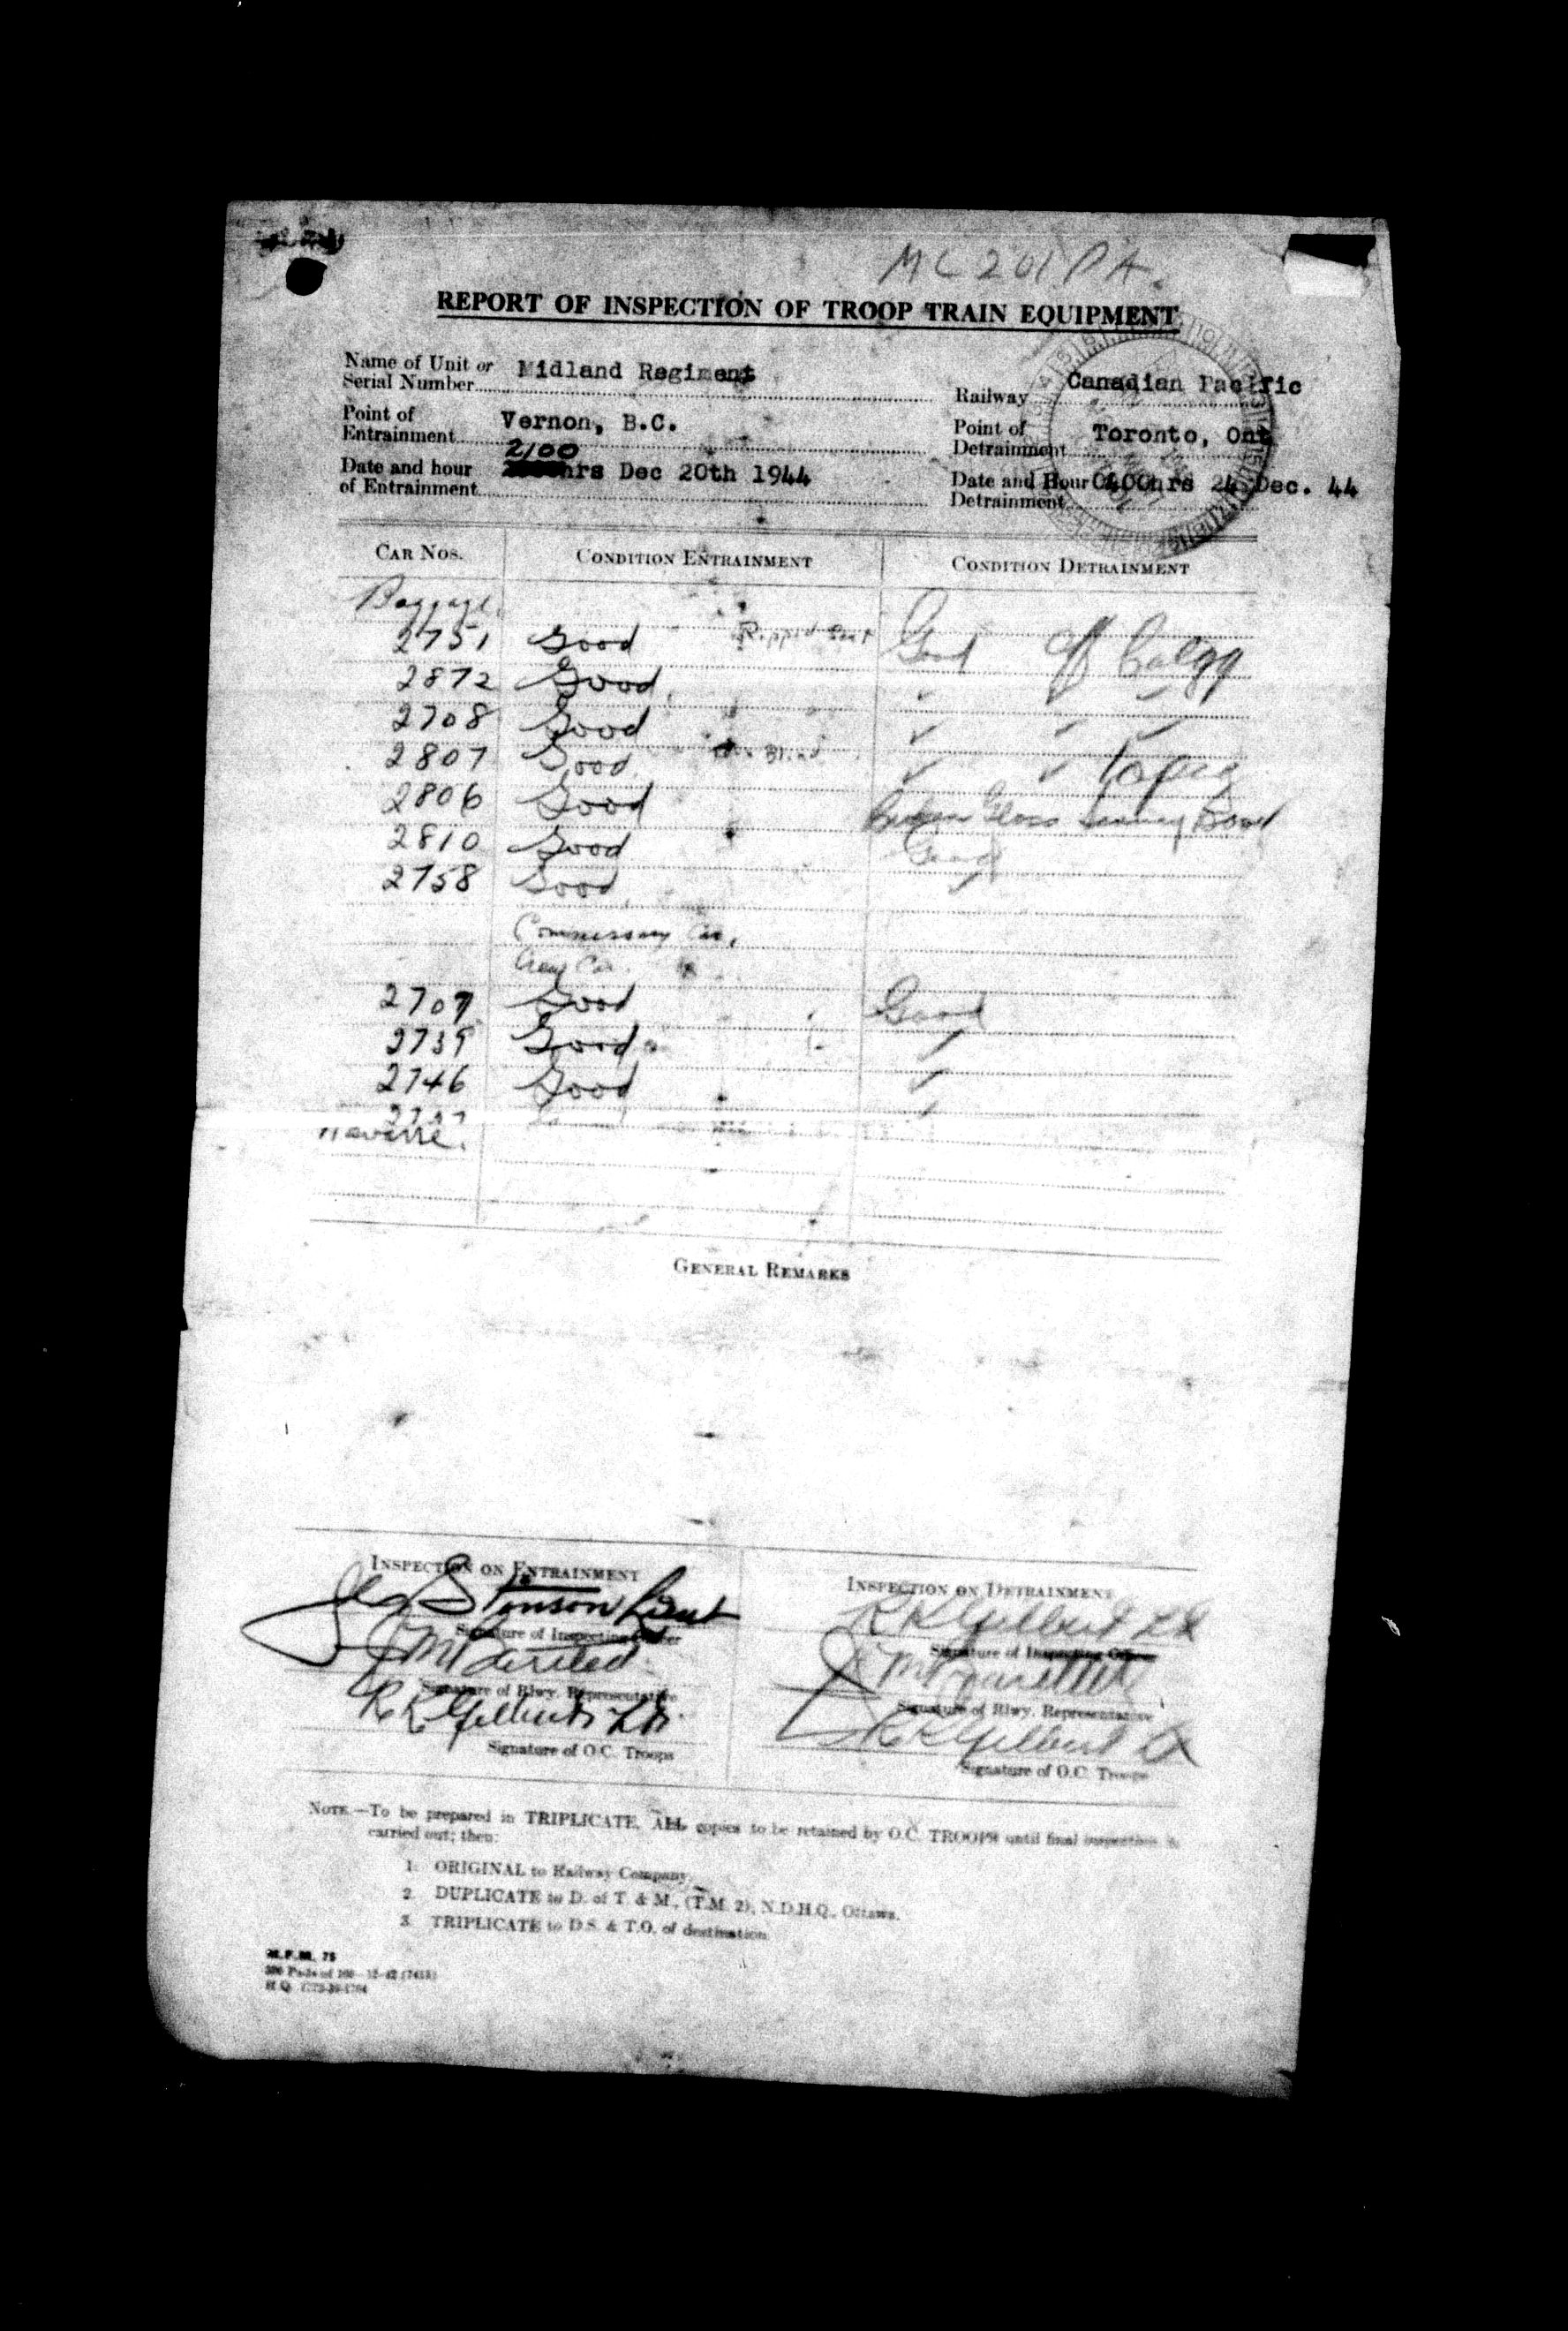 MC 201 PA.
REPORT OF INSPECTION OF TROOP TRAIN EQUIPMENT
Name of Unit or Serial Number Midland Regiment
Railway Canadian Pacific
Point of Entrainment Vernon, B.C.
Point of Detrainment Toronto, Ont
Date and hour of Entrainment 2100 hrs Dec 20th 1944
Date and Hour Detrainment 0400hrs 24 Dec. 44
CAR NOS. CONDITION ENTRAINMENT CONDITION DETRAINMENT
Baggage.
2751 Good Ripped Seat Good off Calgy
2872 Good ✓ ✓ ✓
2708 Good ✓ ✓ ✓
2807 Good Blind ✓ ✓
2806 Good Broken Glass
2810 Good Good
2758 Good ✓
Commissary Car.
Car.
2707 Good Good
2739 Good ✓
2746 Good ✓
✓
Navarre.
GENERAL REMARKS
INSPECTION ON ENTRAINMENT
Stinson Lieut
Signature of Inspecting Officer
Signature of Rlwy. Representative
R K Gilbert Lt.
Signature of O.C. Troops
INSPECTION ON DETRAINMENT
R K Gilbert Lt
Signature of Inspecting Officer
Signature of Rlwy. Representative
R K Gilbert Lt
Signature of O.C. Troops
NOTE.—To be prepared in TRIPLICATE. ALL copies to be retained by O.C. TROOPS until final inspection is
carried out; then:
1. ORIGINAL to Railway Company.
2. DUPLICATE to D. of T. & M., (T.M. 2), N.D.H.Q., Ottawa.
3. TRIPLICATE to D.S. & T.O. of destination.
M.F.M. 75
H.Q.